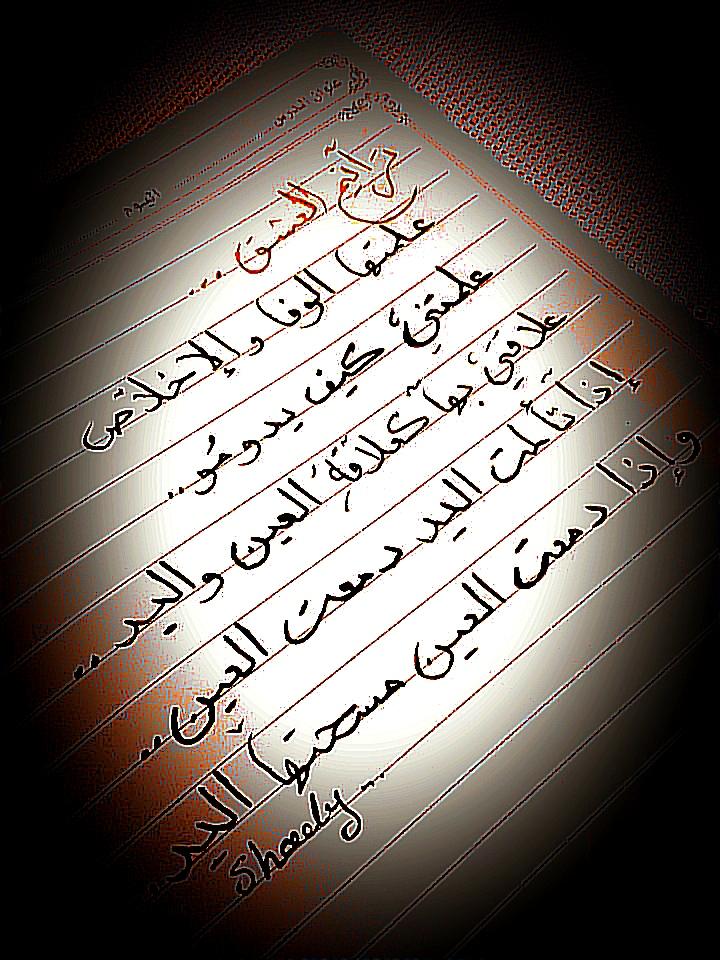 عنوان الدرس
اليوم
ترانيم العشق ...
علمتها الوفا والإخلاص
علمتني كيف يدومو..
علاقتي بها كعلاقة العين واليد ..
إذا تألمت اليد دمعت العين ..
وإذا دمعت العين مسحتها اليد ...
Shaedy